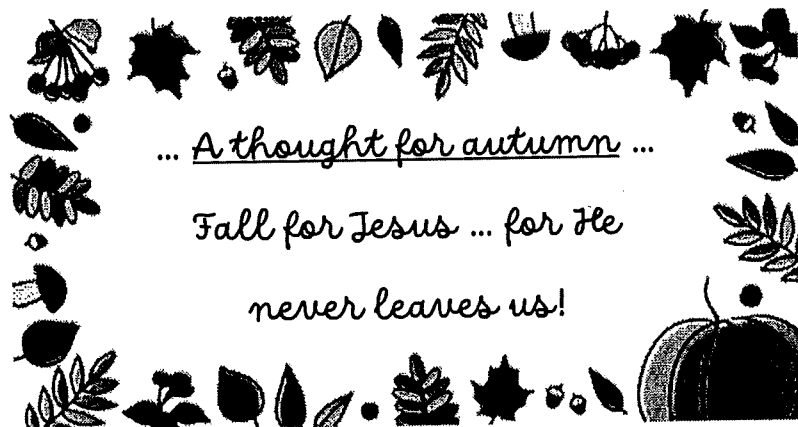 ... A thought for autumn ...
Fall for Jesus ... for He
never leaves us!